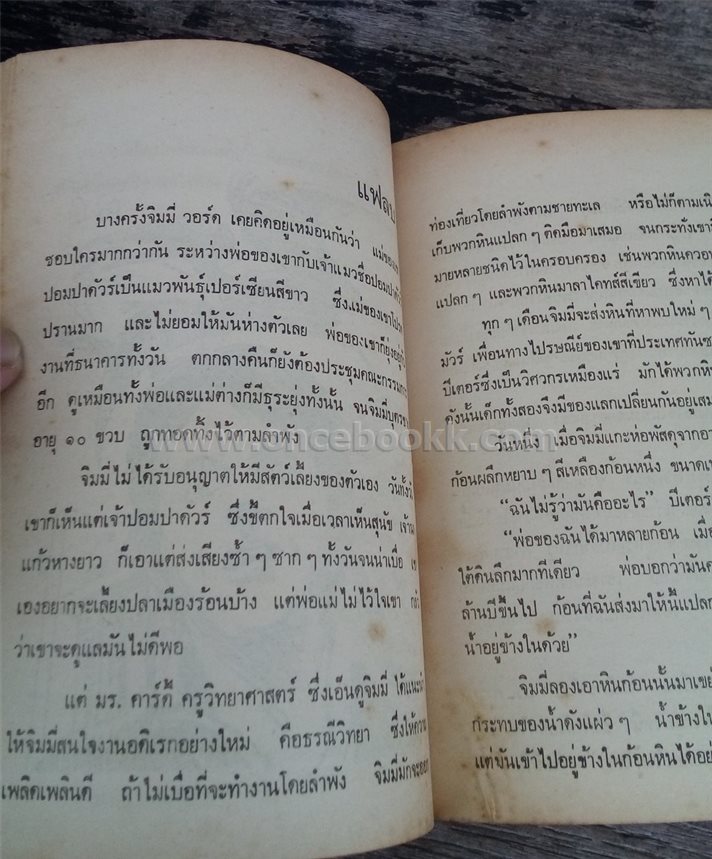 แฟลบ
บางครั้งจิมมี่ วอร์ด เคยคิดอยู่เหมือนกันว่า แม่ของเขา
ชอบใครมากกว่ากัน ระหว่างพ่อของเขากับเจ้าแมวชื่อปอมปาดัวร์
ปอมปาดัวร์เป็นแมวพันธุ์เปอร์เซียนสีขาว ซึ่งแม่ของเขาโปรด
ปรานมาก และไม่ยอมให้มันห่างตัวเลย พ่อของเขาก็ยุ่งอยู่กับ
งานที่ธนาคารทั้งวัน ตกกลางคืนก็ยังต้องประชุมคณะกรรมการ
อีก ดูเหมือนทั้งพ่อและแม่ต่างก็มีธุระยุ่งทั้งนั้น จนจิมมี่บุตรชาย
อายุ ๑๐ ขวบ ถูกทอดทิ้งไว้ตามลำพัง
จิมมี่ไม่ได้รับอนุญาตให้มีสัตว์เลี้ยงของตัวเอง วันทั้งวัน
เขาก็เห็นแต่เจ้าปอมปาดัวร์ ซึ่งขี้ตกใจเมื่อเวลาเห็นสุนัข เจ้านก
แก้วหางยาว ก็เอาแต่ส่งเสียงซ้ำ ๆ ซาก ๆ ทั้งวันจนน่าเบื่อ
เองอยากจะเลี้ยงปลาเมืองร้อนบ้าง แต่พ่อแม่ไม่ไว้ใจเขา กลัว
ว่าเขาจะดูแลมันไม่ดีพอ
แต่ มร. คาร์ดี ครูวิทยาศาสตร์ ซึ่งเอ็นดูจิมมี่ ได้แนะนำ
ให้จิมมี่สนใจงานอดิเรกอย่างใหม่ คือธรณีวิทยา ซึ่งให้ความ
เพลิดเพลินดี ถ้าไม่เบื่อที่จะทำงานโดยลำพัง จิมมี่มักจะออก
ท่องเที่ยวโดยลำพังตามชายทะเล หรือไม่ก็ตามเนิ
เก็บพวกหินแปลก ๆ ติดมือมาเสมอ จนกระทั่งเขามี
มายหลายชนิดไว้ในครอบครอง เช่นพวกหินควอท
แปลก ๆ และพวกหินมาลาไคทส์สีเขียว ซึ่งหาได้
ทุก ๆ เดือนจิมมี่จะส่งหินที่หาพบใหม่ ๆ
มัวร์ เพื่อนทางไปรษณีย์ของเขาที่ประเทศทันซ
บีเตอร์ซึ่งเป็นวิศวกรเหมืองแร่ มักได้พวกหิน
ดังนั้นเด็กทั้งสองจึงมีของแลกเปลี่ยนกันอยู่เสม
วันหนึ่ง เมื่อจิมมี่แกะห่อพัสดุจากอา
ก้อนผลึกหยาบ ๆ สีเหลืองก้อนหนึ่ง ขนาดเท
“ฉันไม่รู้ว่ามันคืออะไร” บีเตอร์
“พ่อของฉันได้มาหลายก้อน เมื่อ
ใต้ดินลึกมากทีเดียว พ่อบอกว่ามัน
ล้านปีขึ้นไป ก้อนที่ฉันส่งมาให้นี้แปลก
น้ำอยู่ข้างในด้วย”
จิมมี่ลองเอาหินก้อนนั้นมาเขย่
กระทบของน้ำดังแผ่ว ๆ น้ำข้างใน
แต่มันเข้าไปอยู่ข้างในก้อนหินได้อย่
www.oncebookk.com